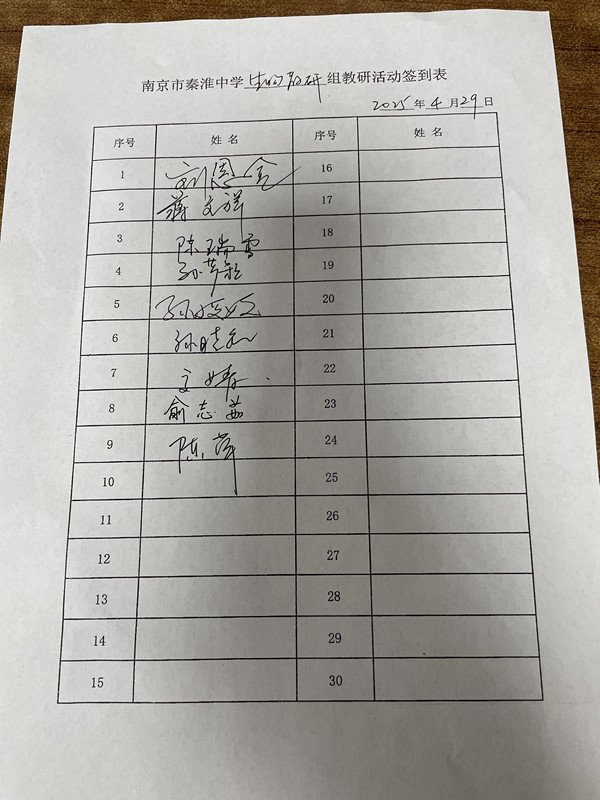 南京市秦淮中学生物教研组教研活动签到表
2025年4月29日
序号 姓名 序号 姓名
1 刘恩金 16
2 蒋文祥 17
3 陈瑞雪 18
4 孙芳 19
5 孙媛媛 20
6 孙晓 21
7 婧 22
8 俞志茹 23
9 陈萍 24
10 25
11 26
12 27
13 28
14 29
15 30